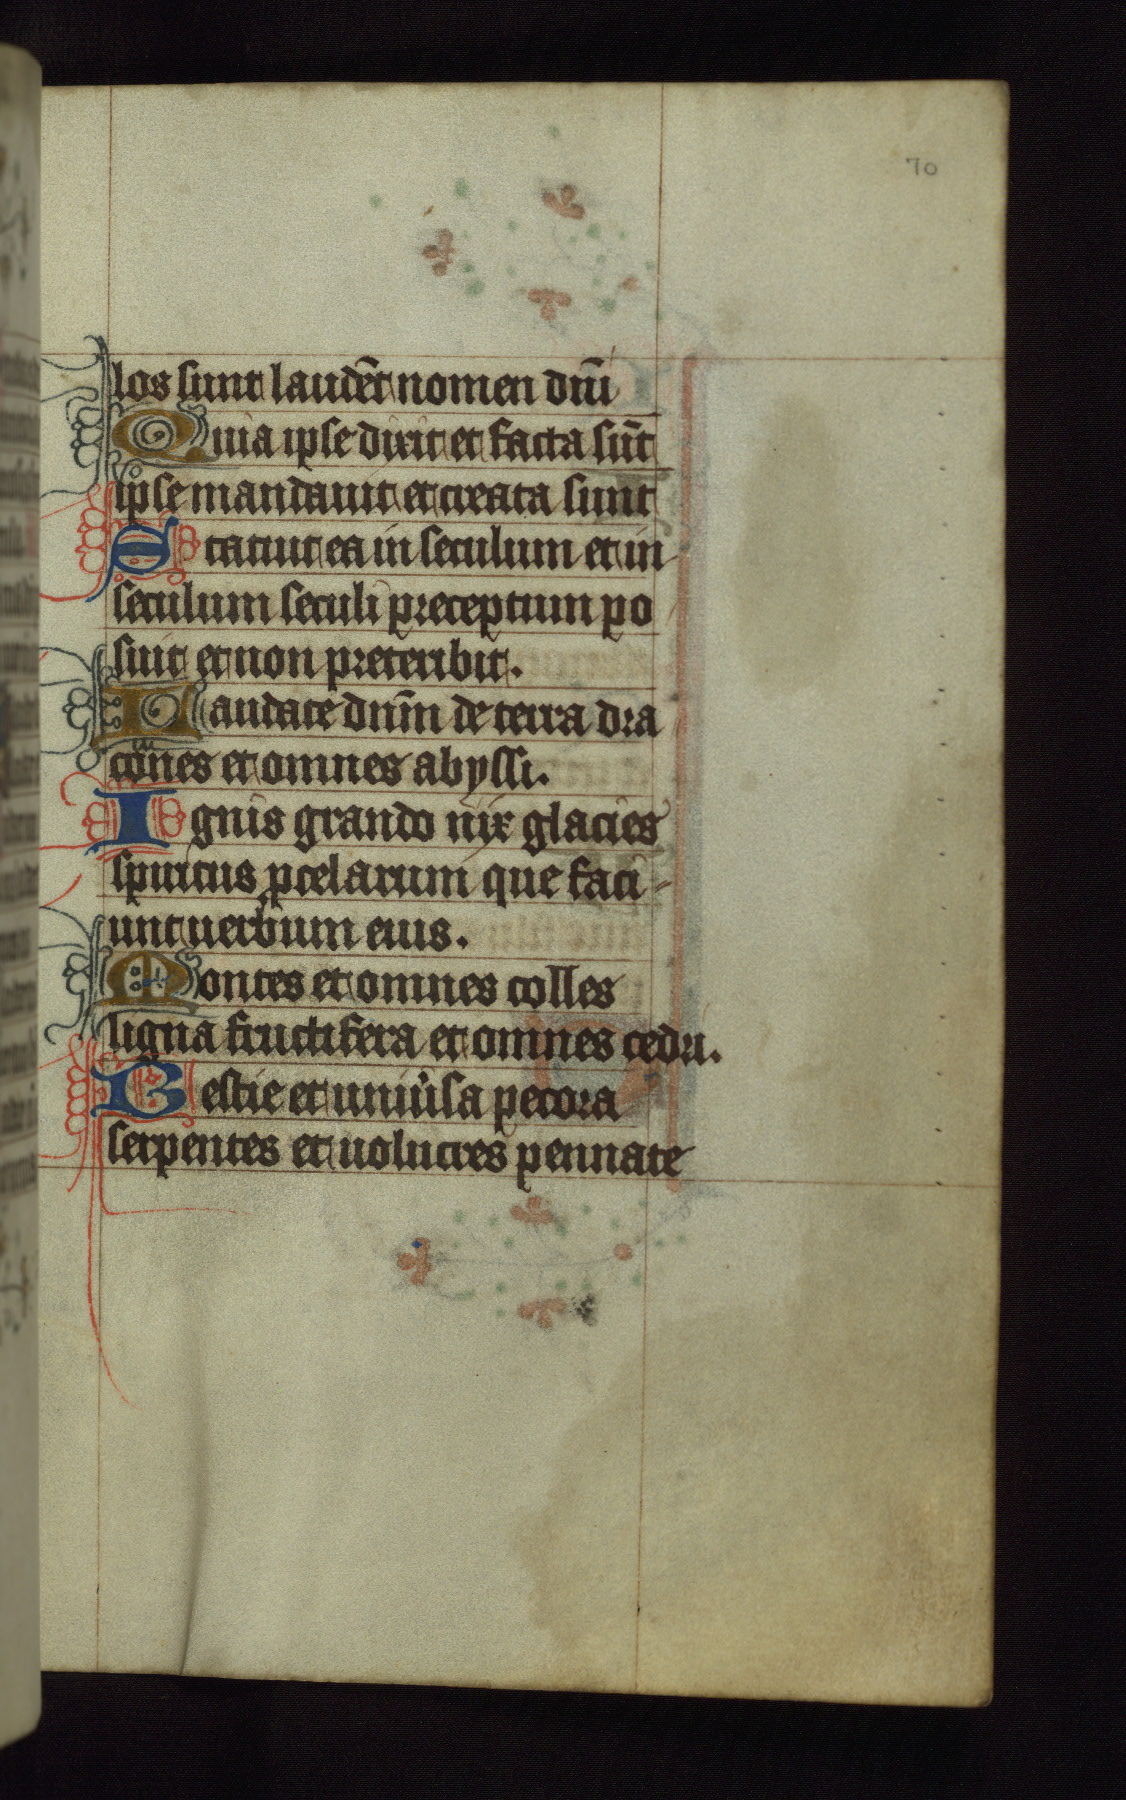 70
los sunt laudēt nomen dnī
Quia ipse dixit et facta sūt
ipse mandauit et creata sunt
Statuit ea in seculum et in
seculum seculi preceptum po
suit et non preteribit.
Laudate dnm̄ de terra dra
cones et omnes abyssi.
Ignis grando nix glacies
spiritus pcelarum que faci-
unt uerbum eius.
Montes et omnes colles
ligna fructifera et omnes cedri.
Bestie et uniu'sa pecora
serpentes et uolucres pennate